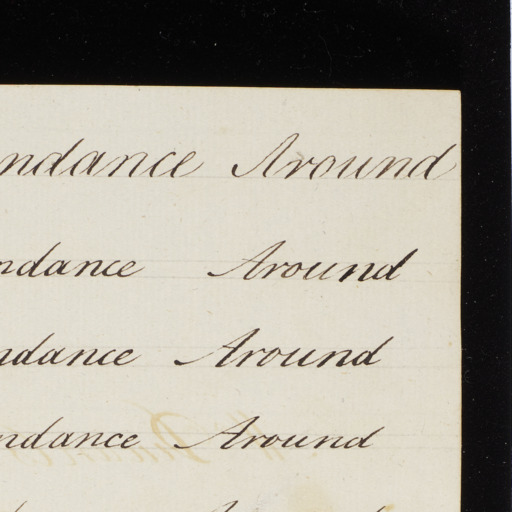 ndance Around
ndance Around
ndance Around
ndance Around